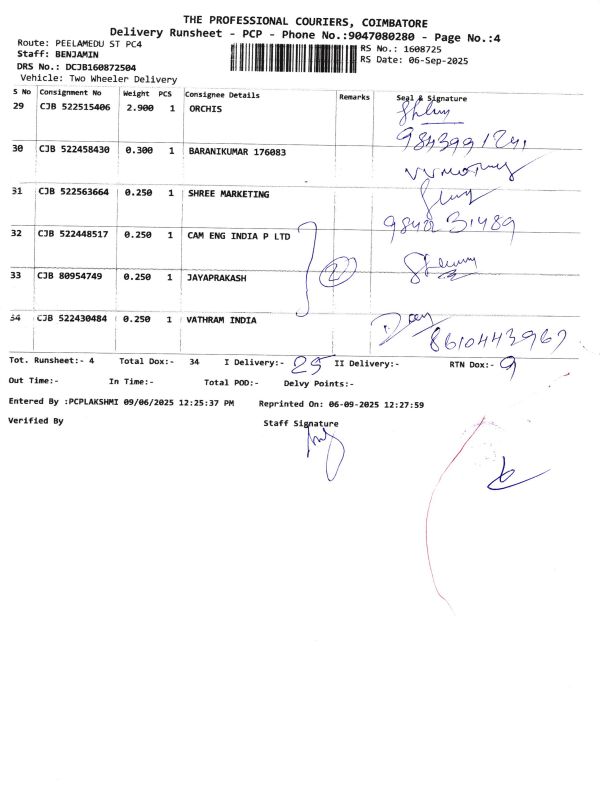 THE PROFESSIONAL COURIERS, COIMBATORE
Delivery Runsheet - PCP - Phone No.:9047080280 - Page No.:4
Route: PEELAMEDU ST PC4 RS No.: 1608725
Staff: BENJAMIN RS Date: 06-Sep-2025
DRS No.: DCJB160872504
Vehicle: Two Wheeler Delivery
S No Consignment No Weight PCS Consignee Details Remarks Seal & Signature
29 CJB 522515406 2.900 1 ORCHIS
9843991241
30 CJB 522458430 0.300 1 BARANIKUMAR 176083
31 CJB 522563664 0.250 1 SHREE MARKETING
32 CJB 522448517 0.250 1 CAM ENG INDIA P LTD
2
33 CJB 80954749 0.250 1 JAYAPRAKASH
34 CJB 522430484 0.250 1 VATHRAM INDIA
Tot. Runsheet:- 4 Total Dox:- 34 I Delivery:- 25 II Delivery:- RTN Dox:- 9
Out Time:- In Time:- Total POD:- Delvy Points:-
Entered By :PCPLAKSHMI 09/06/2025 12:25:37 PM Reprinted On: 06-09-2025 12:27:59
Verified By Staff Signature